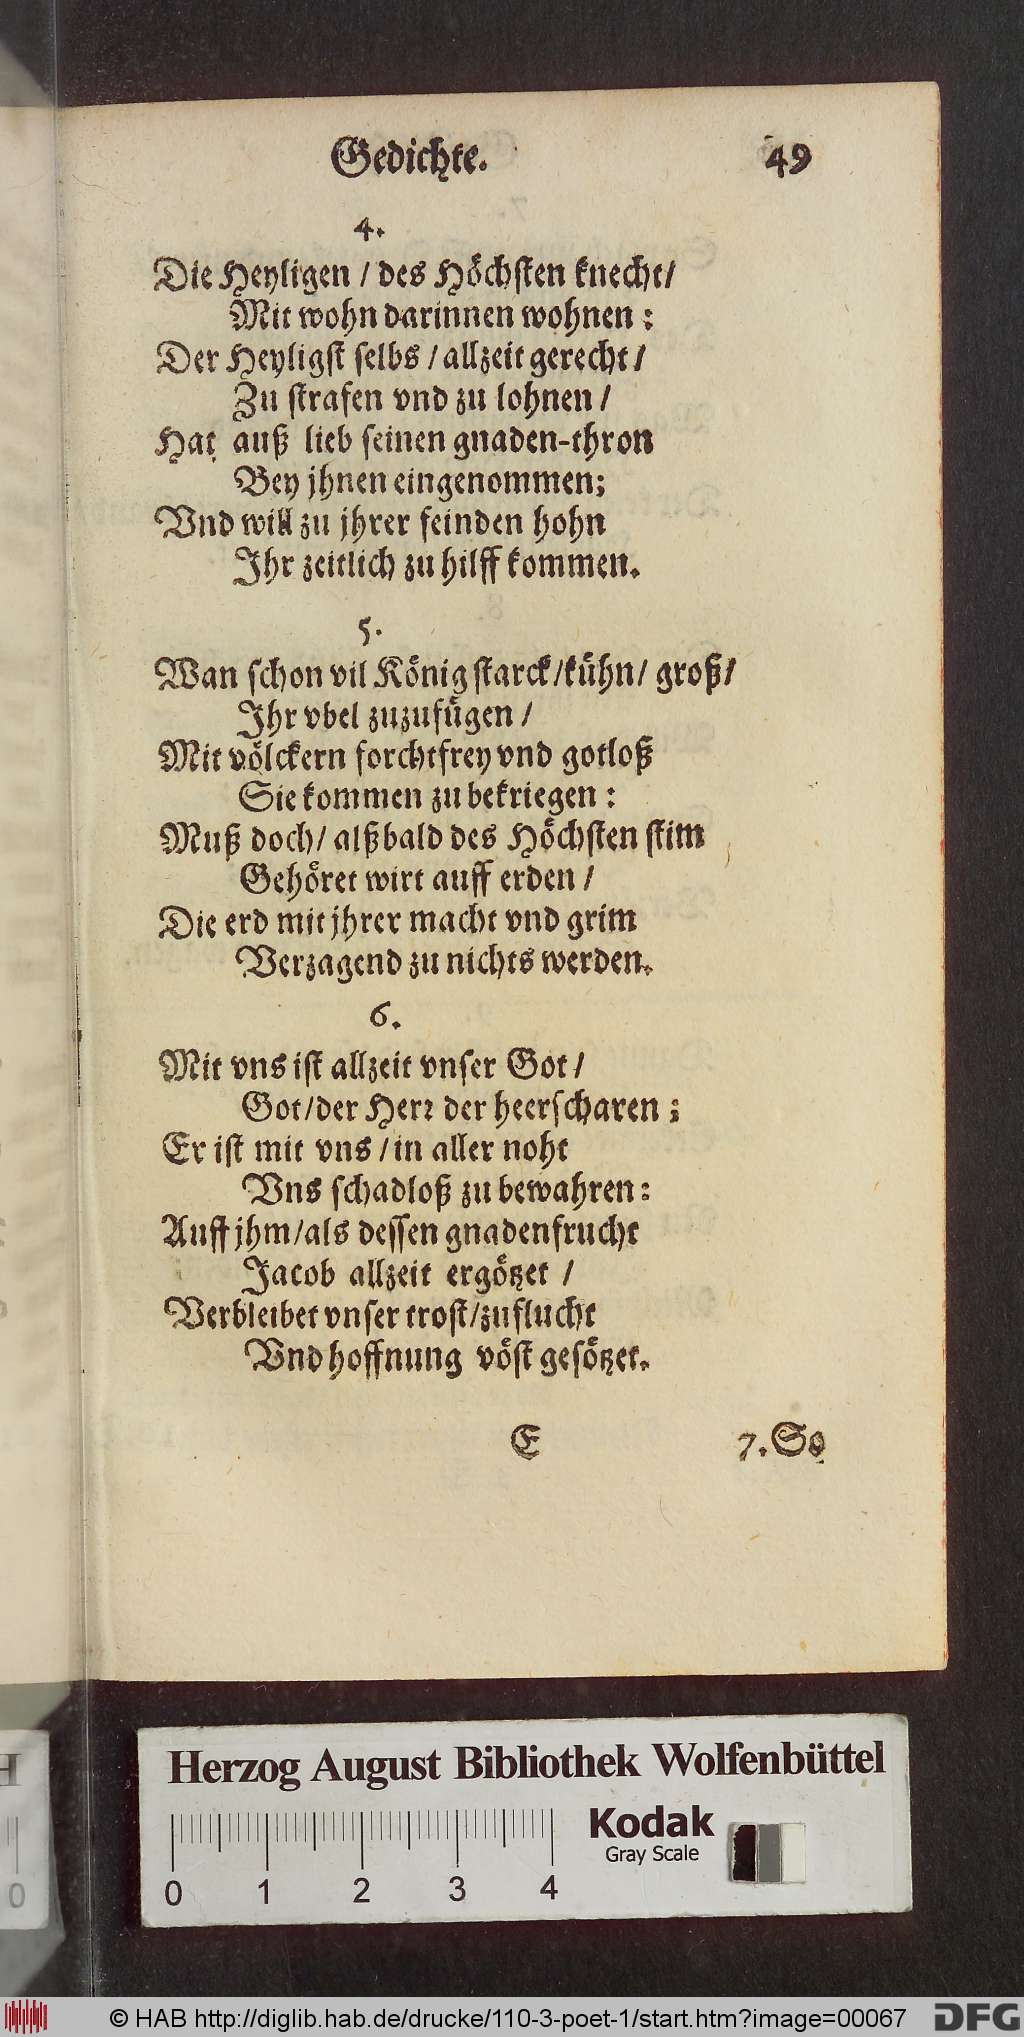 Gedichte. 49
4.
Die Heyligen / des Höchsten knecht/
Mit wohn darinnen wohnen :
Der Heyligst selbs / allzeit gerecht /
Zu strafen vnd zu lohnen /
Hat auß lieb seinen gnaden-thron
Bey jhnen eingenommen;
Vnd will zu jhrer feinden hohn
Ihr zeitlich zu hilff kommen.
5.
Wan schon vil König starck/kühn/ groß/
Ihr vbel zuzufügen /
Mit völckern forchtfrey vnd gotloß
Sie kommen zu bekriegen :
Muß doch/ alßbald des Höchsten stim
Gehöret wirt auff erden /
Die erd mit jhrer macht vnd grim
Verzagend zu nichts werden.
6.
Mit vns ist allzeit vnser Got /
Got/der Herr der heerscharen ;
Er ist mit vns / in aller noht
Vns schadloß zu bewahren :
Auff jhm/als dessen gnadenfrucht
Jacob allzeit ergötzet /
Verbleibet vnser trost/zuflucht
Vnd hoffnung vöst gesötzet.
E 7. So
Herzog August Bibliothek Wolfenbüttel
Kodak
Gray Scale
0 1 2 3 4
© HAB http://diglib.hab.de/drucke/110-3-poet-1/start.htm?image=00067
DFG